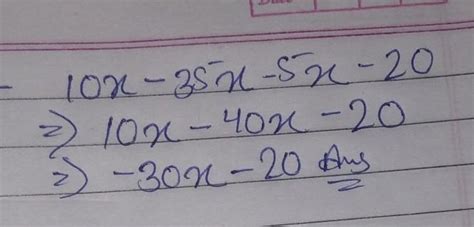 10x - 35x - 5x - 20
⇒ 10x - 40x - 20
⇒ -30x - 20 Ans